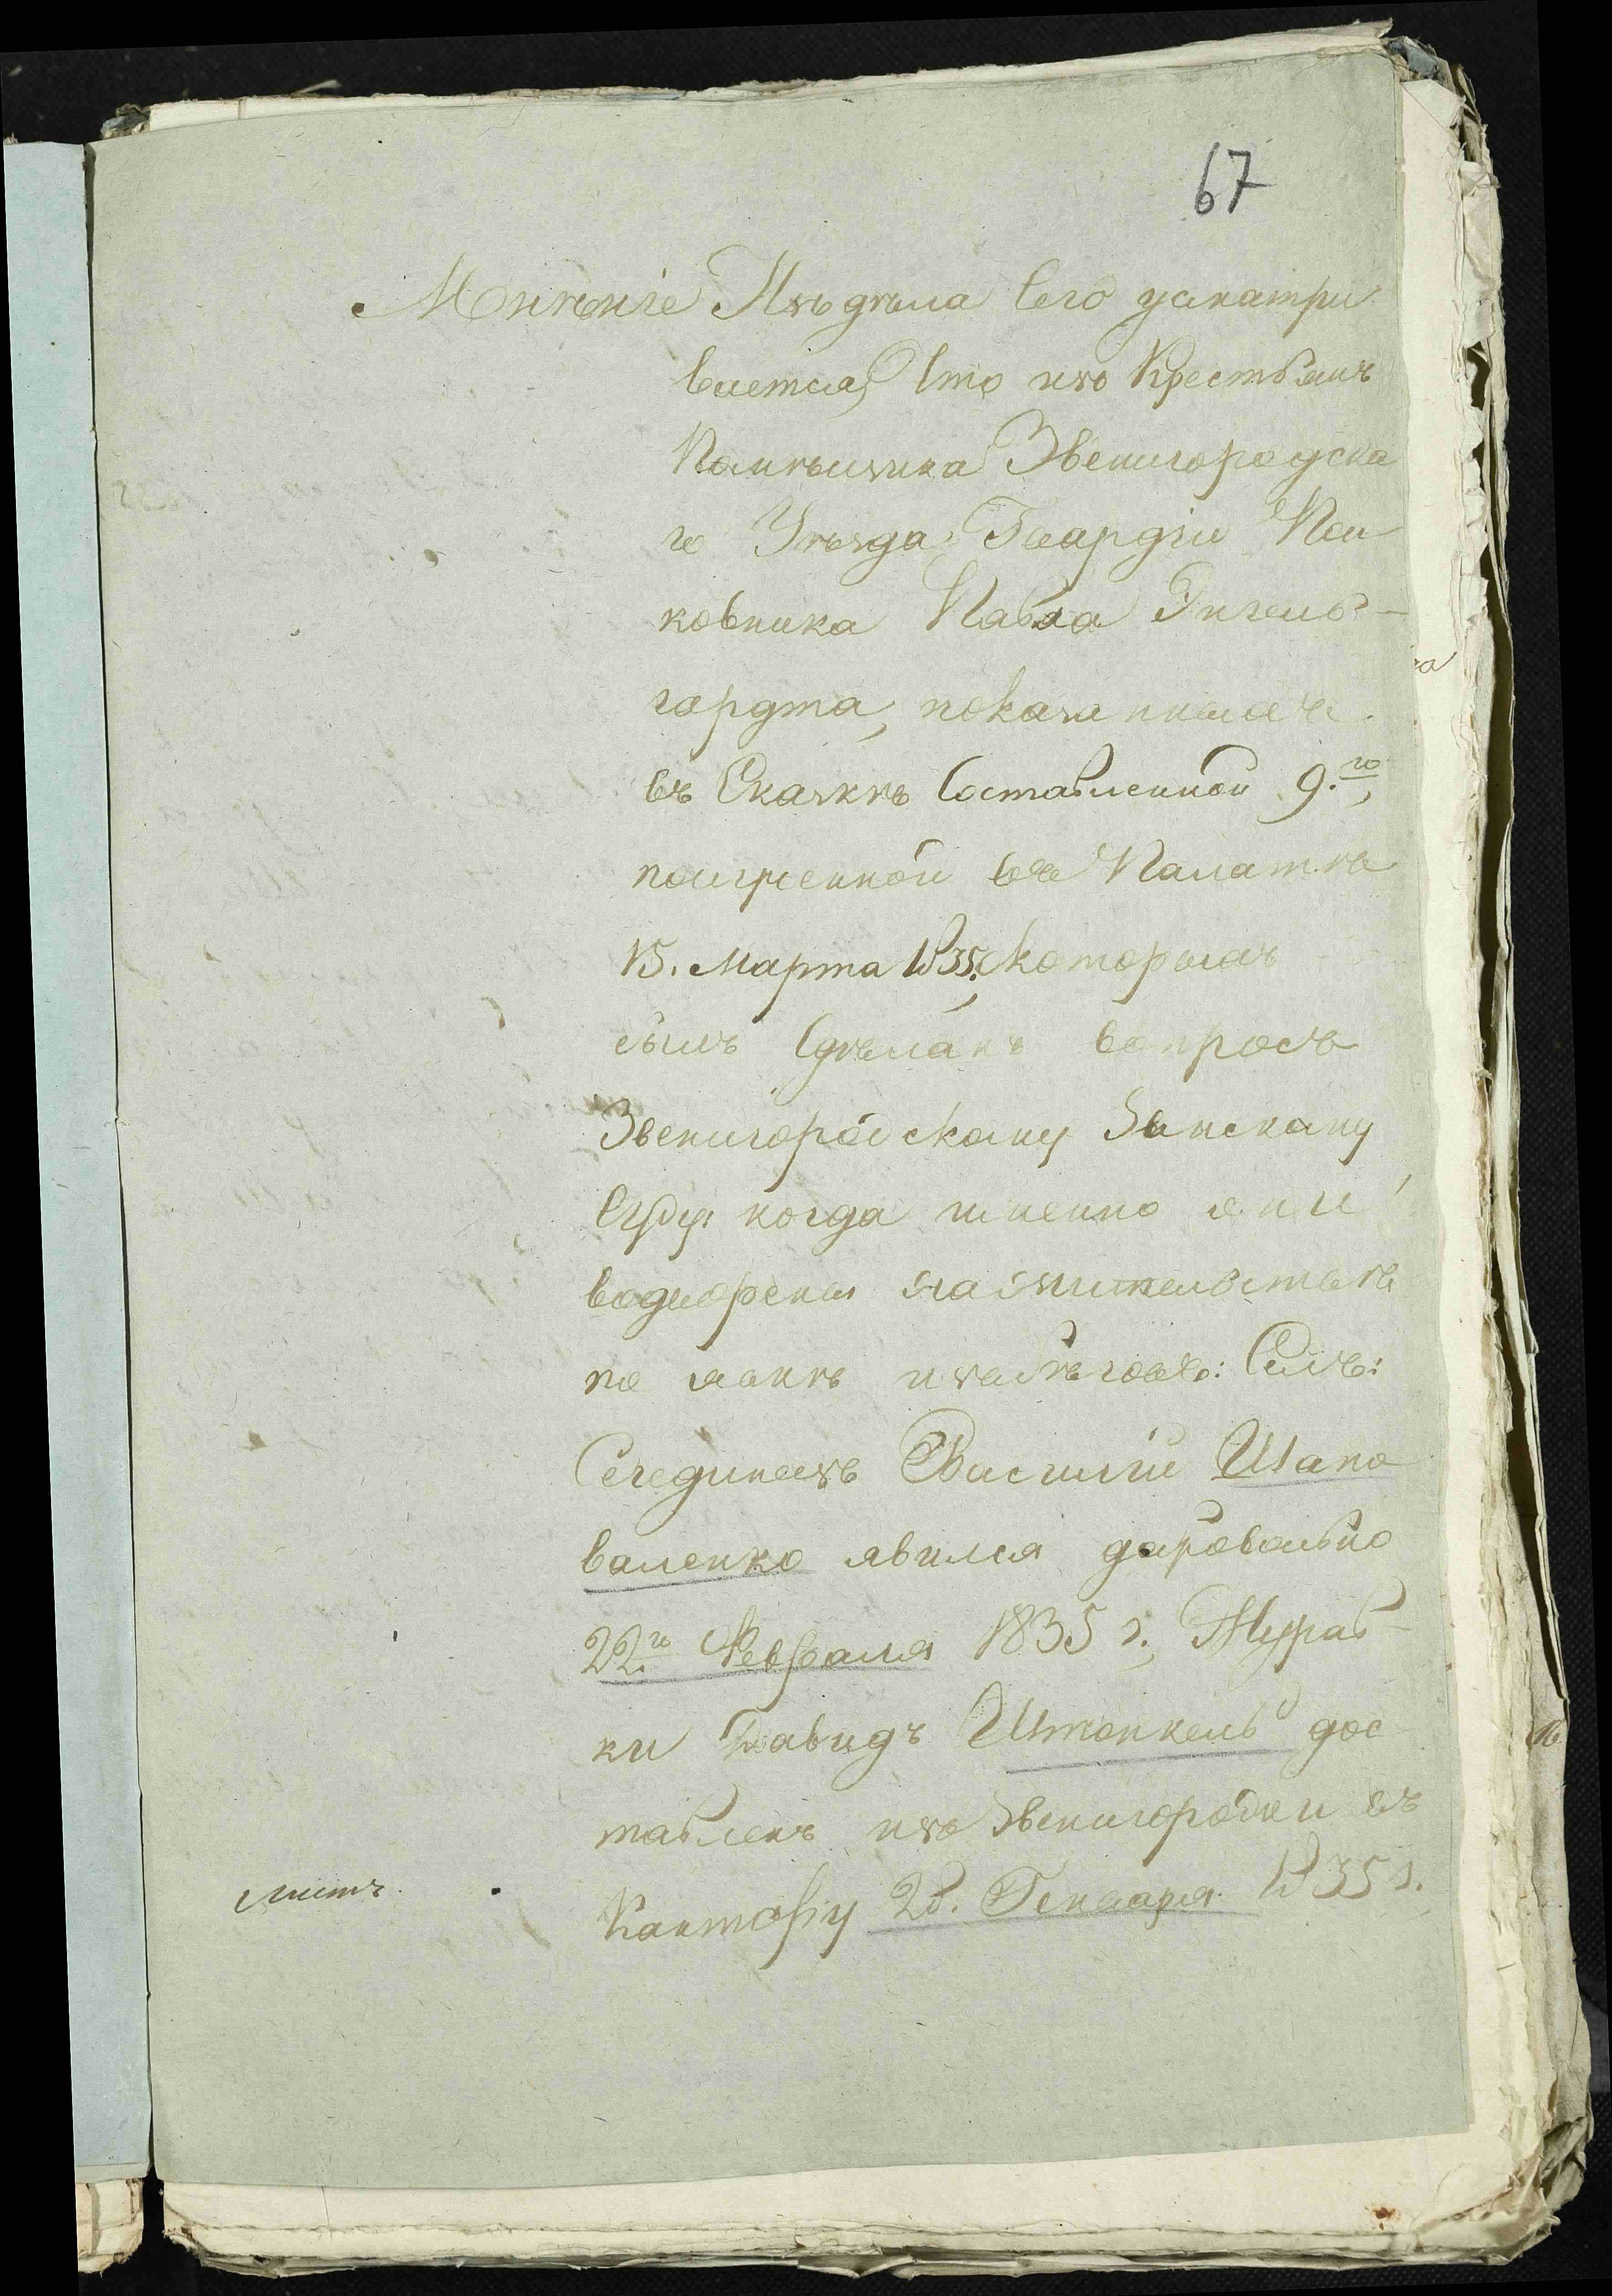 67
Мнѣніе Изъ дѣла Сего усматри
вается, что изъ Крестьянъ
Помѣщика Звенигородска
го Уѣзда Гвардіи Пол
ковника Павла Энгель-
гардта, показанныхъ
въ Сказкѣ Составленной 9.го,
полученной въ Палатѣ
15. Марта 1835, которымъ
былъ Сдѣланъ вопросъ
Звенигородскому Земскому
Суду когда именно они
водворены на жительствѣ
по явкѣ изъ бѣговъ: Сел:
Василій Шапо
валенко явился добровольно
22го Февраля 1835 г., Мураб
ки Давидъ дос
тавленъ изъ Звенигородки въ
Контору 28. Генваря 1835 г.
листъ